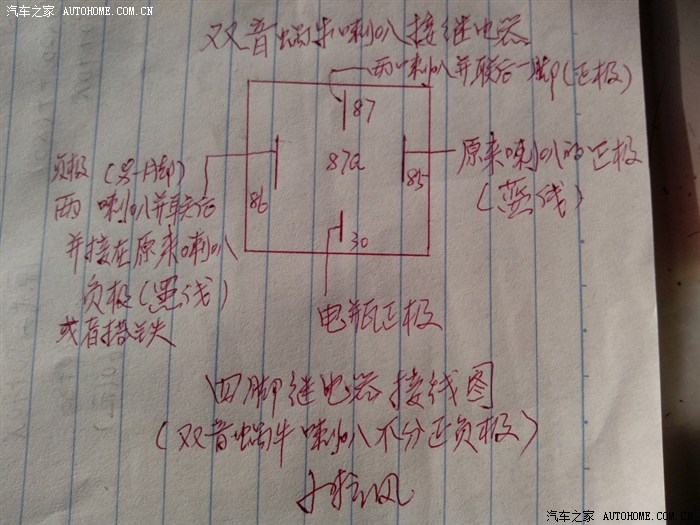 汽车之家 AUTOHOME.COM.CN
双音蜗牛喇叭接继电器
两喇叭并联后一脚(正极)
87
87a
86
85
30
原来喇叭的正极
(蓝线)
负极(另一脚)
两喇叭并联后
并接在原来喇叭
负极(黑线)
或者搭铁
电瓶正极
四脚继电器接线图
(双音蜗牛喇叭不分正负极)
汽车之家 AUTOHOME.COM.CN